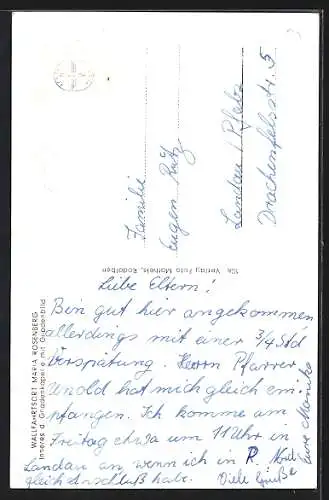 WALLFAHRTSORT MARIA ROSENBERG
Inneres d. Gnadenkapelle mit Gnadenbild
Verlag Foto Matheis, Rodalben
Familie
Eugen
Landau / Pfalz
Drachenfelsstr. 5
Liebe Eltern!
Bin gut hier angekommen
allerdings mit einer 3/4 Std
Verspätung. Herrn Pfarrer
Unold hat mich gleich em-
pfangen. Ich komme am
Freitag etwa um 11 Uhr in
Landau an wenn ich in P.
gleich Anschluß hab.
Viele Grüße
Eure Monika